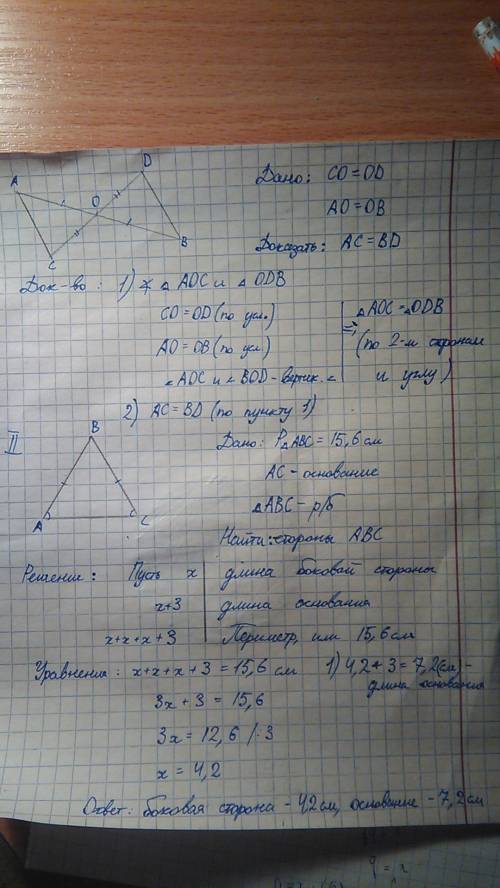 A
D
O
B
C
Дано: CO = OD
AO = OB
Доказать: AC = BD
Док-во: 1) ∢ △ AOC и △ ODB
CO = OD (по усл.)
AO = OB (по усл.)
∠AOC и ∠BOD - вертик. ∠
=> △AOC = △ODB
(по 2-м сторонам
и углу)
2) AC = BD (по пункту 1)
II
B
A
C
Дано: P△ABC = 15,6 см
AC - основание
△ABC - р/б
Найти: стороны ABC
Решение: Пусть x | длина боковой стороны
x+3 | длина основания
x+x+x+3 | Периметр, или 15,6 см
Уравнение: x+x+x+3 = 15,6 см
3x + 3 = 15,6
3x = 12,6 /:3
x = 4,2
1) 4,2+3 = 7,2(см) -
длина основания
Ответ: боковая сторона - 42 см, основание - 7,2 см